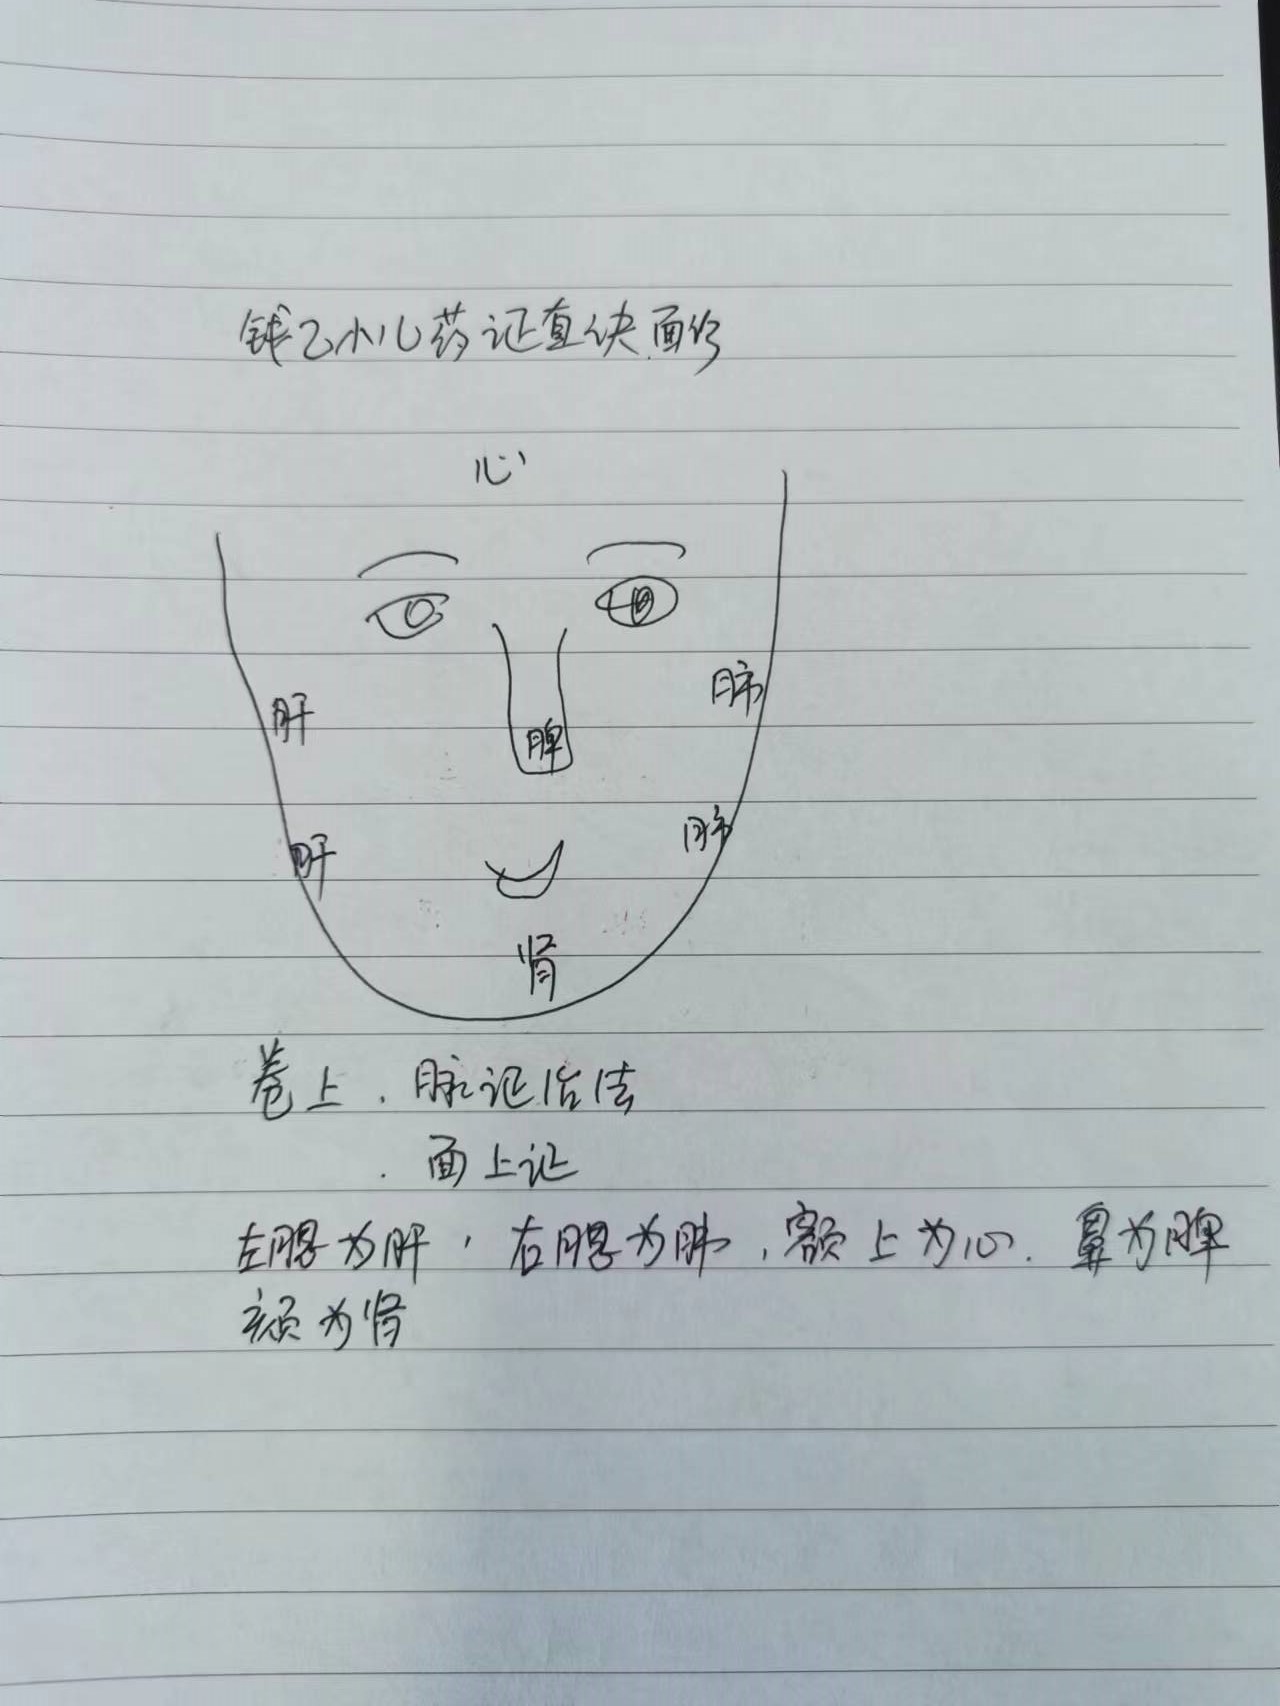 钱乙小儿药证直诀面诊
心
肝 肺
脾
肝 肺
肾
卷上.脉证治法
.面上证
左腮为肝,右腮为肺,额上为心.鼻为脾
颏为肾